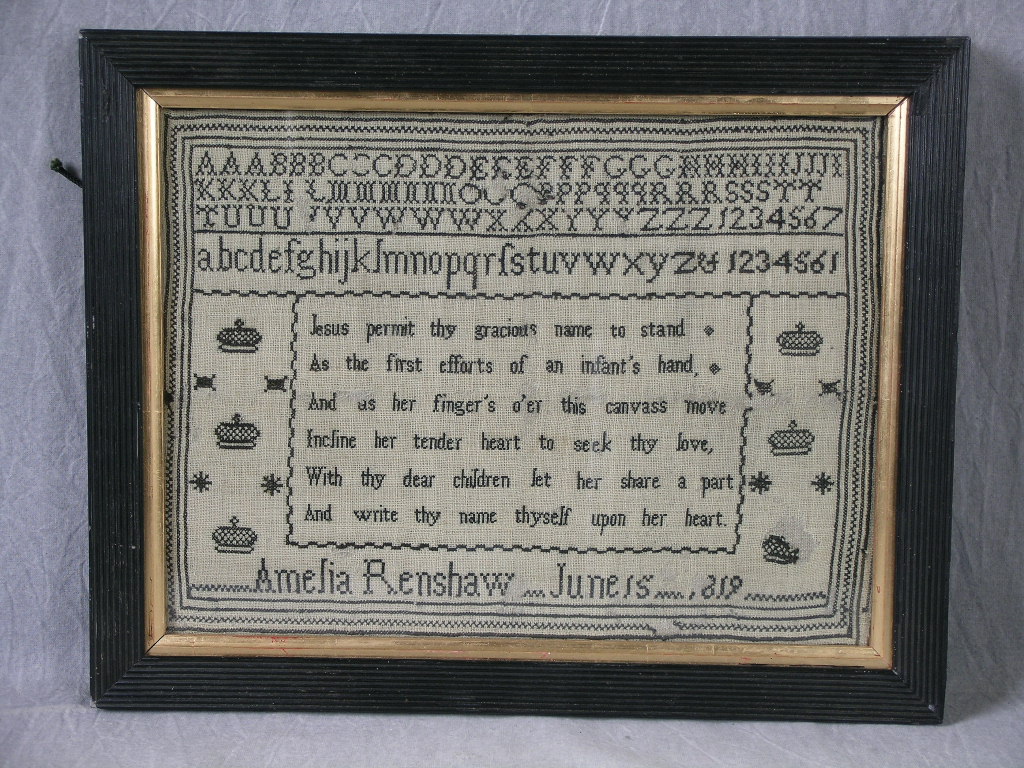 AAABBBCCCDDDEEEFFFGGGHHHIIIJJJI
KKKLL LMMMNNNOOOPPPQQQRRRSSSTT
TUUU VVVWWWXXXYYYZZZ1234567
abcdefghijklmnopqrſstuvwxyz& 1234561
Jesus permit thy gracious name to stand
As the first efforts of an infant's hand,
And as her finger's o'er this canvass move
Incline her tender heart to seek thy love,
With thy dear children let her share a part
And write thy name thyself upon her heart.
Amelia Renshaw June 15 1819